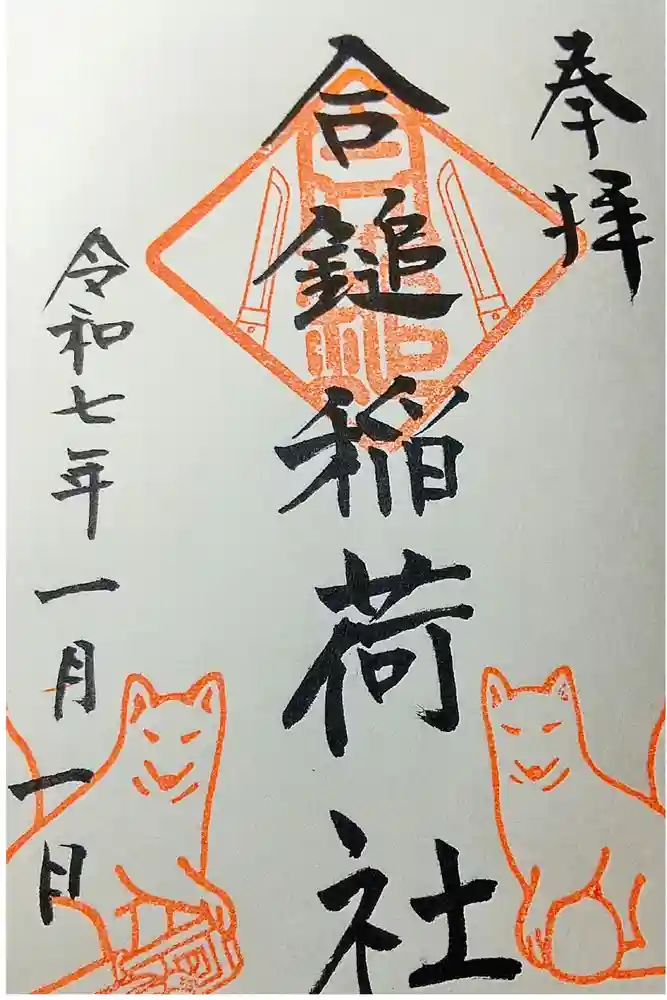 奉拝
合鎚稲荷社
令和七年一月一日